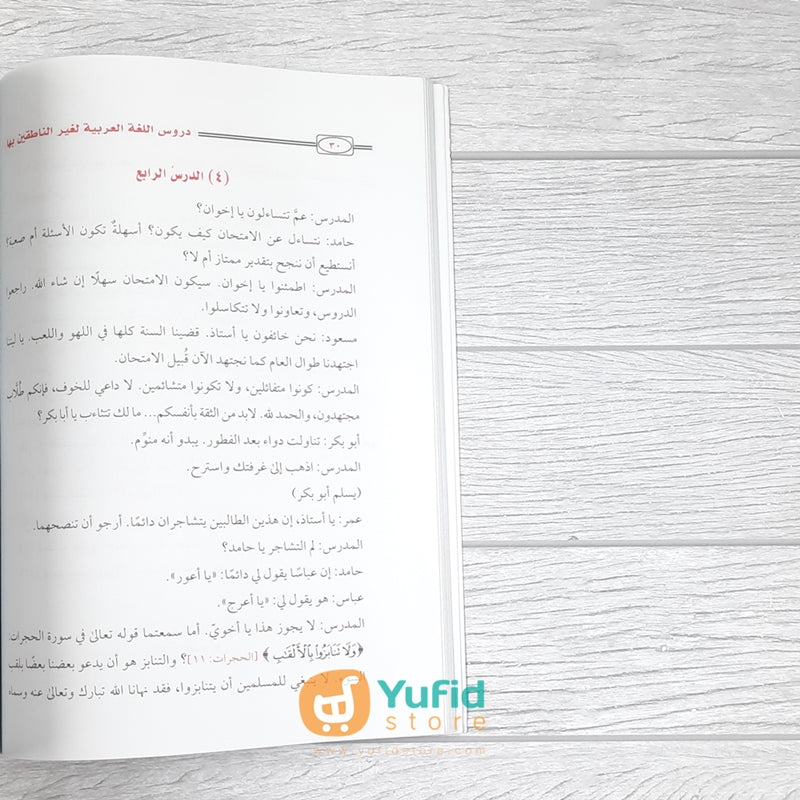 دروس اللغة العربية لغير الناطقين بها
٣٠
(٤) الدرس الرابع
المدرس: عمَّ تتساءلون يا إخوان؟
حامد: نتساءل عن الامتحان كيف يكون؟ أسهلةٌ تكون الأسئلة أم صعبة؟
أنستطيع أن ننجح بتقدير ممتاز أم لا؟
المدرس: اطمئنوا يا إخوان. سيكون الامتحان سهلًا إن شاء الله. راجعوا
الدروس، وتعاونوا ولا تتكاسلوا.
مسعود: نحن خائفون يا أستاذ. قضينا السنة كلها في اللهو واللعب. يا ليتنا
اجتهدنا طوال العام كما نجتهد الآن قُبيل الامتحان.
المدرس: كونوا متفائلين، ولا تكونوا متشائمين. لا داعي للخوف، فإنكم طُلَّاب
مجتهدون، والحمد لله. لابد من الثقة بأنفسكم... ما لك تتثاءب يا أبا بكر؟
أبو بكر: تناولت دواء بعد الفطور. يبدو أنه منوِّم.
المدرس: اذهب إلى غرفتك واسترح.
(يسلم أبو بكر)
عمر: يا أستاذ، إن هذين الطالبين يتشاجران دائمًا. أرجو أن تنصحهما.
المدرس: لم التشاجر يا حامد؟
حامد: إن عباسًا يقول لي دائمًا: «يا أعور».
عباس: هو يقول لي: «يا أعرج».
المدرس: لا يجوز هذا يا أخويّ. أما سمعتما قوله تعالى في سورة الحجرات:
﴿وَلَا تَنَابَزُوا بِالْأَلْقَابِ﴾ [الحجرات: ١١]؟ والتنابز هو أن يدعو بعضنا بعضًا بلقب
لا ينبغي للمسلمين أن يتنابزوا، فقد نهانا الله تبارك وتعالى عنه وسماه
Yufid
store
www.yufidstore.com